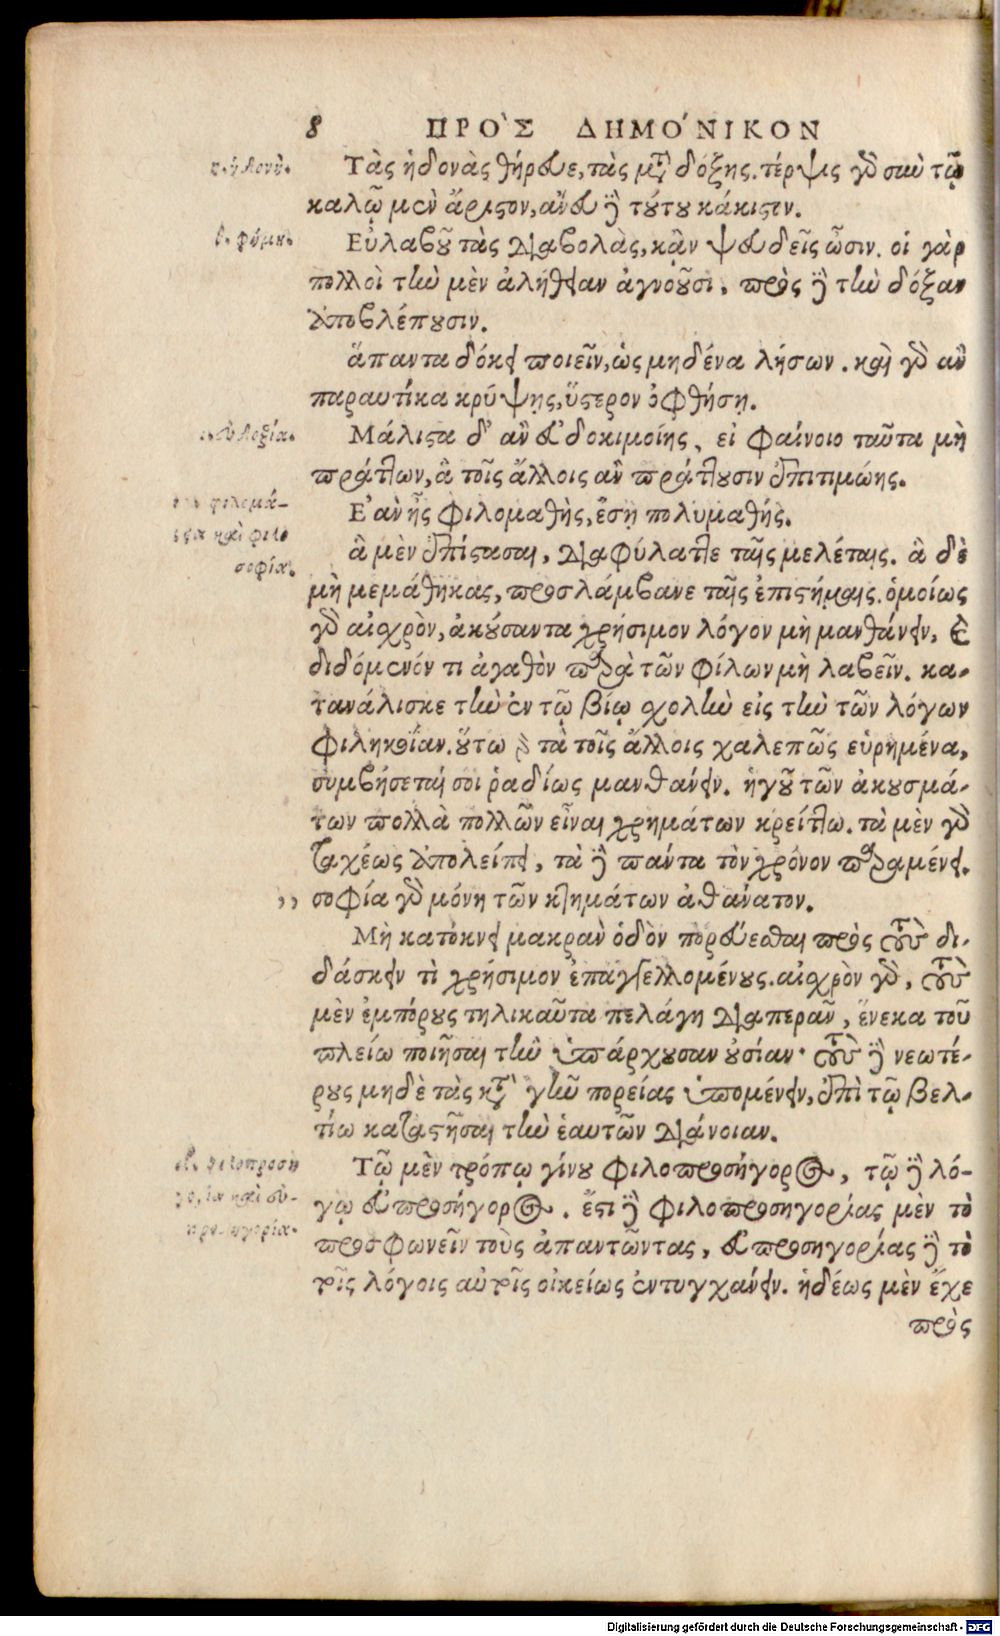 8 ΠΡΟ`Σ ΔΗΜΟ´ΝΙΚΟΝ
Τὰς ἡδονὰς θήρευε, τὰς μετὰ δόξης. τέρψις γὰρ σὺν τῷ
καλῷ μὲν ἄριστον, ἄνευ δὲ τούτου κάκιστον.
Εὐλαβοῦ τὰς διαβολὰς, κἂν ψευδεῖς ὦσιν. οἱ γὰρ
πολλοὶ τὴν μὲν ἀλήθειαν ἀγνοοῦσι, πρὸς δὲ τὴν δόξαν
ἀποβλέπουσιν.
ἅπαντα δόκει ποιεῖν, ὡς μηδένα λήσων. καὶ γὰρ ἂν
παραυτίκα κρύψῃς, ὕστερον ὀφθήσῃ.
Μάλιστα δ' ἂν εὐδοκιμοίης, εἰ φαίνοιο ταῦτα μὴ
πράττων, ἃ τοῖς ἄλλοις ἂν πράττουσιν ἐπιτιμώης.
Ἐὰν ᾖς φιλομαθὴς, ἔσῃ πολυμαθής.
ἃ μὲν ἐπίστασαι, διαφύλαττε ταῖς μελέταις. ἃ δὲ
μὴ μεμάθηκας, προσλάμβανε ταῖς ἐπιστήμαις. ὁμοίως
γὰρ αἰσχρὸν, ἀκούσαντα χρήσιμον λόγον μὴ μανθάνειν, καὶ
διδόμενόν τι ἀγαθὸν παρὰ τῶν φίλων μὴ λαβεῖν. κα-
τανάλισκε τὴν ἐν τῷ βίῳ σχολὴν εἰς τὴν τῶν λόγων
φιληκοΐαν. οὕτω γὰρ τὰ τοῖς ἄλλοις χαλεπῶς εὑρημένα,
συμβήσεταί σοι ῥαδίως μανθάνειν. ἡγοῦ τῶν ἀκουσμά-
των πολλὰ πολλῶν εἶναι χρημάτων κρείττω. τὰ μὲν γὰρ
ταχέως ἀπολείπει, τὰ δὲ πάντα τὸν χρόνον παραμένει.
,, σοφία γὰρ μόνη τῶν κτημάτων ἀθάνατον.
Μὴ κατόκνει μακρὰν ὁδὸν πορεύεσθαι πρὸς τοὺς δι-
δάσκειν τὶ χρήσιμον ἐπαγγελλομένους. αἰσχρὸν γὰρ, τοὺς
μὲν ἐμπόρους τηλικαῦτα πελάγη διαπερᾶν, ἕνεκα τοῦ
πλείω ποιῆσαι τὴν ὑπάρχουσαν οὐσίαν· τοὺς δὲ νεωτέ-
ρους μηδὲ τὰς κατὰ γῆν πορείας ὑπομένειν, ἐπὶ τῷ βελ-
τίω καταστῆσαι τὴν ἑαυτῶν διάνοιαν.
Τῷ μὲν τρόπῳ γίνου φιλοπροσήγορος, τῷ δὲ λό-
γῳ εὐπροσήγορος. ἔστι δὲ φιλοπροσηγορίας μὲν τὸ
προσφωνεῖν τοὺς ἀπαντῶντας, εὐπροσηγορίας δὲ τὸ
τοῖς λόγοις αὐτοῖς οἰκείως ἐντυγχάνειν. ἡδέως μὲν ἔχε
πρὸς
φιλομά-
καὶ φιλο
σοφία.
φιλοπροση
Digitalisierung gefördert durch die Deutsche Forschungsgemeinschaft - DFG